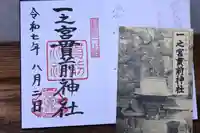 一之宮貫前神社
令和七年八月二日
一之宮貫前神社